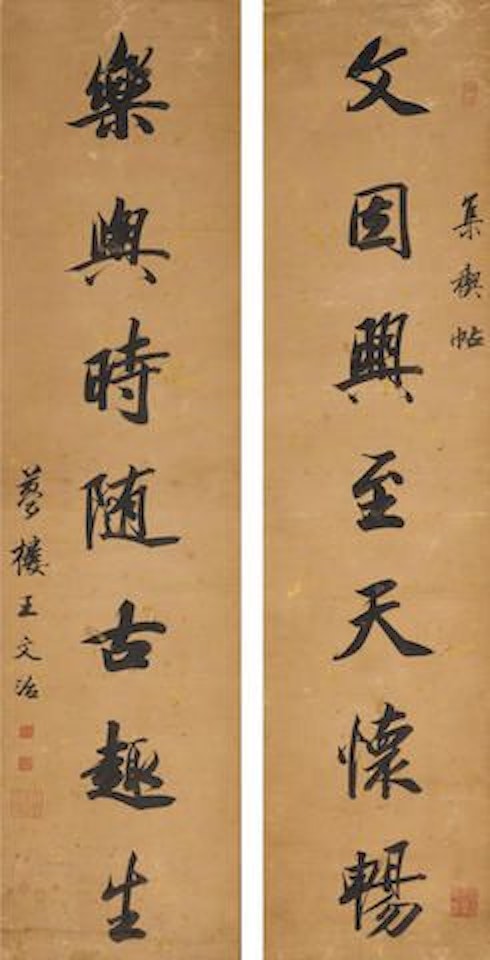 集禊帖
文因興至天懷暢
樂與時随古趣生
夢樓王文治